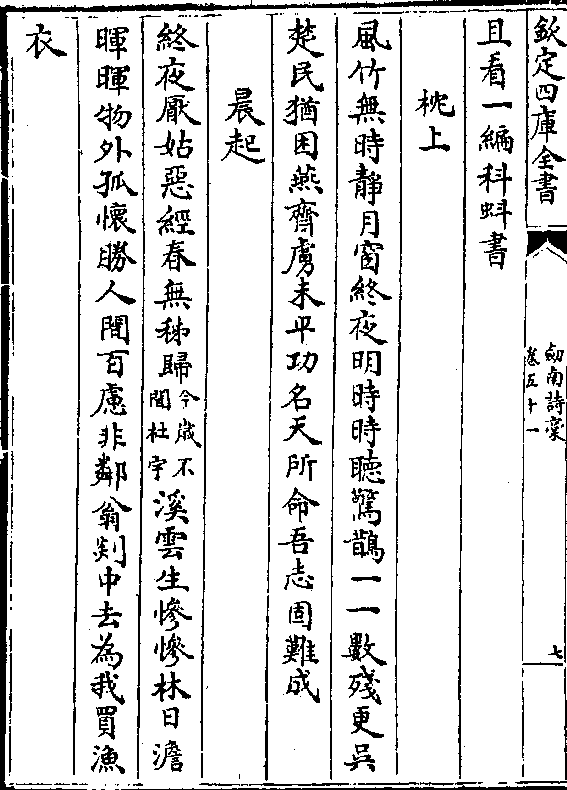 欽定四庫全書
劒南詩稾
卷五十一
七
且看一編科蚪書
枕上
風竹無時靜月窗終夜明時時聽驚鵲一一數殘更吳
楚民猶困燕齊虜未平功名天所命吾志固難成
晨起
終夜厭姑惡經春無秭歸今歲不聞杜宇溪雲生慘慘林日澹
暉暉物外孤懷勝人間百慮非鄰翁剡中去為我買漁
衣